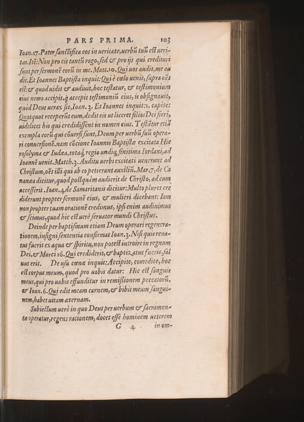 PARS PRIMA. 103
Ioan.17. Pater sanctifica eos in ueritate, uerbũ tuũ est ueri-
tas. Itẽ: Nõ pro eis tantũ rogo, sed & pro ijs qui credituri
sunt per sermonẽ eorũ in me. Matt.10. Qui uos audit, me au
dit. Et Ioannes Baptista inquit: Qui è cœlo uenit, supra oẽs
est: & quod uidit & audiuit, hoc testatur, & testimonium
eius nemo accipit. q accepit testimoniũ eius, is obsignauit,
quòd Deus uerax sit, Ioan. 3. Et Ioannes inquit 1. capite:
Quotquot receperũt eum, dedit eis ut liceret filios Dei fieri,
uidelicet his qui credidissent in nomen eius. Testãtur etiã
exempla eorũ qui cõuersi sunt, Deum per uerbũ suũ opera-
ri conuersionẽ. nam
rosolyma & Iudæa tota, & regio undiq; finitima Iordani, ad
Ioannẽ uenit. Matth.3. Auditu uerbi excitati uenerunt ad
Christum,
nanæa dicitur, quod postquàm audierit de Christo, ad eum
accesserit. Ioan. 4. de Samaritanis dicitur: Multò plures cre
diderunt propter sermonẽ eius, & mulieri dicebant: Iam
non propter tuam orationẽ credimus, ipsi enim audiuimus
& scimus, quòd hic est uerè seruator mundi Christus.
Deinde per baptismum etiam Deum operari regenera-
tionem, insigni sententia confirmat Ioan.3. Nisi quis rena-
tus fuerit ex aqua & spiritu, non potest introire in regnum
Dei, & Marci 16. Qui crediderit, & baptizatus fuerit, sal
uus erit. De usu cœnæ inquit: Accipite, comedite, hoc
est corpus meum, quod pro uobis datur: Hic est sanguis
meus, qui pro uobis effunditur in remissionem peccatorũ.
& Ioan. 6. Qui edit meam carnem, & bibit meum sangui-
nem, habet uitam æternam.
Subiectum uerò in quo Deus per uerbum & sacramen-
ta operatur, regens rationem, docet esse hominem ueterem
G 4 in om-